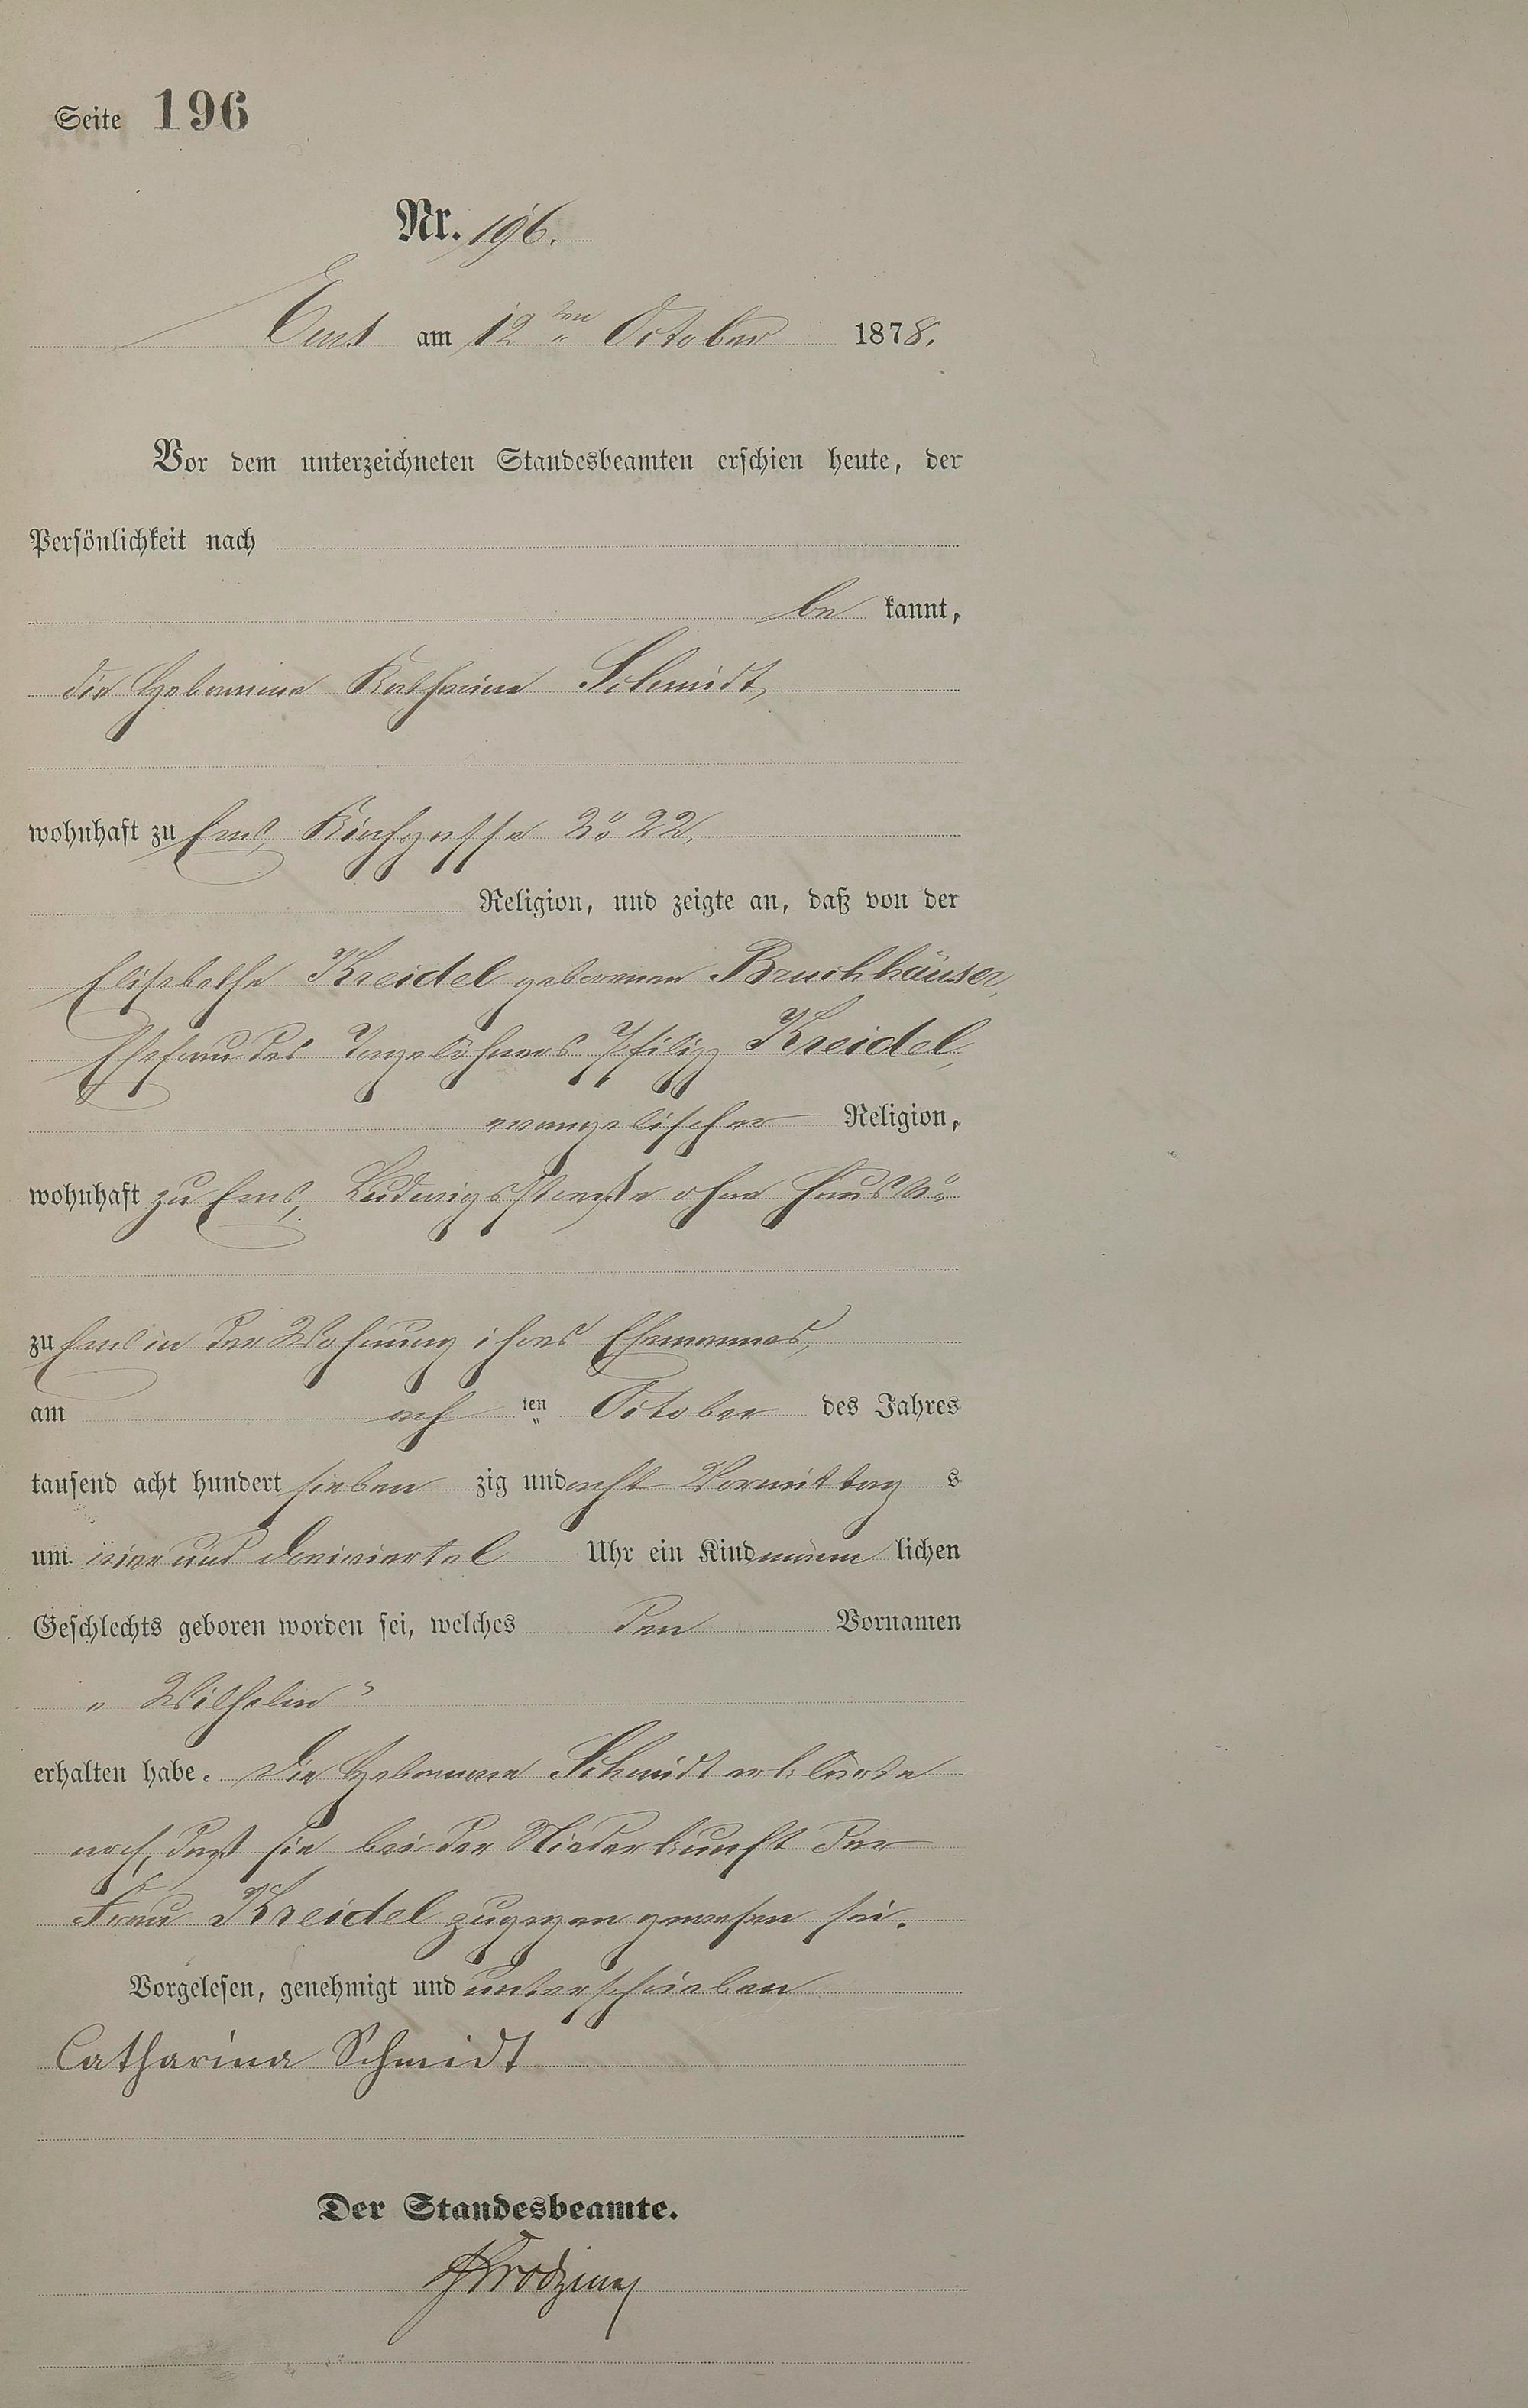 Seite 196
Nr. 196.
Ems am 12ten October 1878.
Vor dem unterzeichneten Standesbeamten erschien heute, der
Persönlichkeit nach
be kannt,
die Hebamme Katharine Schmidt,
wohnhaft zu Ems, Kirchgasse No 22,
Religion, und zeigte an, daß von der
Elisabethe Kreidel geborenen Bruchhäuser,
Ehefrau des Tagelöhners Philipp Kreidel,
evangelischer Religion,
wohnhaft zu Ems, Ludwigsstraße ohne Haus No
zu Ems in der Wohnung ihres Ehemannes,
am ach ten October des Jahres
tausend acht hundert sieben zig und acht Vormittag s
um ein und dreiviertel Uhr ein Kind männ lichen
Geschlechts geboren worden sei, welches den Vornamen
„Wilhelm"
erhalten habe. Die Hebamme Schmidt erklärte
noch, daß sie bei der Niederkunft der
Frau Kreidel zugegen gewesen sei.
Vorgelesen, genehmigt und unterschrieben
Catharina Schmidt
Der Standesbeamte.